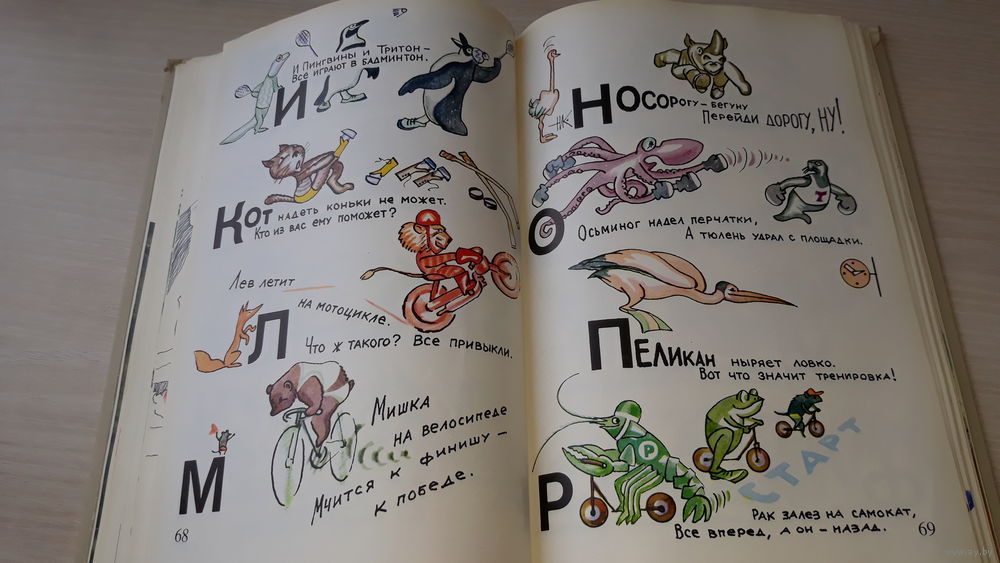 И Пингвины и Тритон –
Все играют в бадминтон.
И
Кот надеть коньки не может.
Кто из вас ему поможет?
Лев летит
на мотоцикле.
Л
Что ж такого? Все привыкли.
Мишка
на велосипеде
М
Мчится к финишу –
к победе.
68
Носорогу – бегуну
Перейди дорогу, НУ!
Т
О
Осьминог надел перчатки,
А тюлень удрал с площадки.
Пеликан ныряет ловко.
Вот что значит тренировка!
Р
СТАРТ
Р
Рак залез на самокат,
Все вперед, а он – назад.
69
www.ay.by